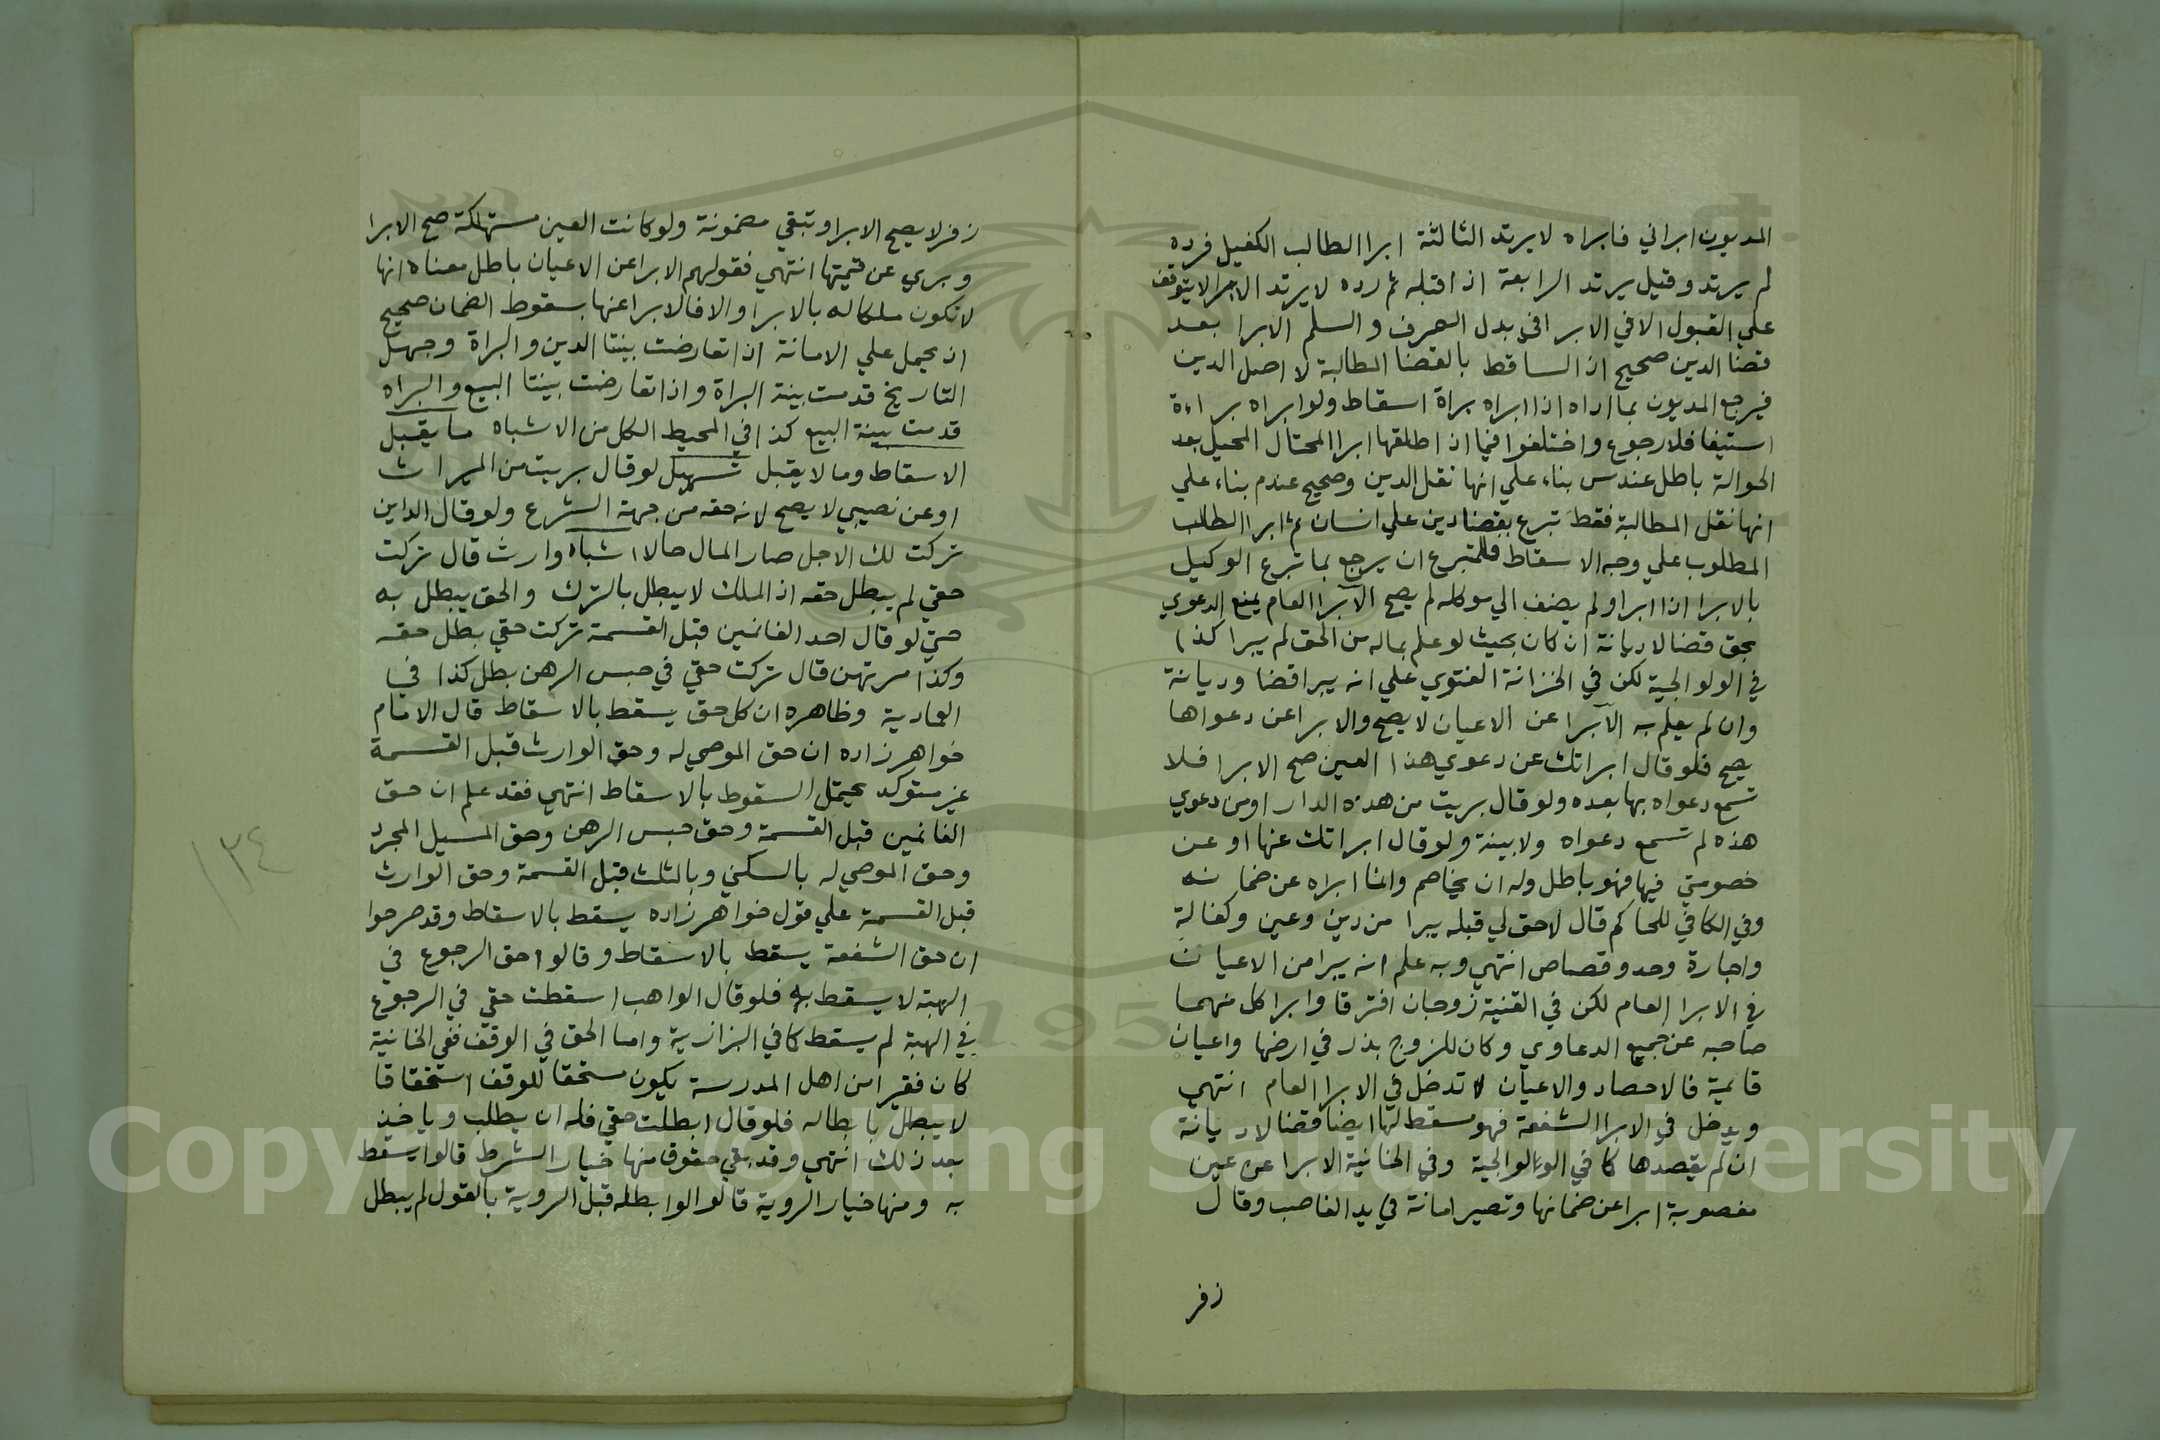 المديون ابراني فابراه لا يرتد الثالثة ابرا الطالب الكفيل فرده
لم يرتد وقيل يرتد الرابعة اذا قبله ثم رده لا يرتد الابرا لا يتوقف
علي القبول الا في الابرا في بدل الصرف والسلم الابرا بعد
قضا الدين صحيح اذ الساقط بالقضا المطالبة لا اصل الدين
فيرجع المديون بما اداه اذا ابراه براة اسقاط ولو ابراه براءة
استيفا فلا رجوع واختلفوا فيما اذا اطلقها ابرا المحتال المحيل بعد
الحوالة باطل عند س بناء علي انها نقل الدين وصحيح عند م بناء علي
انها نقل المطالبة فقط تبرع بقضا دين علي انسان ثم ابرا الطالب
المطلوب علي وجه الاسقاط فللمتبرع ان يرجع بما تبرع الوكيل
بالابرا اذا ابرا ولم يضف الي موكله لم يصح الابرا العام يمنع الدعوي
بحق قضا لا ديانة ان كان بحيث لو علم بماله من الحق لم يبرا كذا
في الولوالجية لكن في الخزانة الفتوي علي انه يبرا قضا وديانة
وان لم يعلم به الابرا عن الاعيان لا يصح والابرا عن دعواها
يصح فلو قال ابراتك عن دعوي هذا العين صح الابرا فلا
تسمع دعواه بها بعده ولو قال بريت من هذه الدار او من دعوي
هذه لم تسمع دعواه ولا بينة ولو قال ابراتك عنها او عن
خصومتي فيها فهو باطل وله ان يخاصم وانما ابراه عن ضمانه
وفي الكافي للحاكم قال لا حق لي قبله يبرا من دين وعين وكفالة
واجارة وحد وقصاص انتهي وبه علم انه يبرا من الاعيان
في الابرا العام لكن في القنية زوجان افترقا وابرا كل منهما
صاحبه عن جميع الدعاوي وكان للزوج بذر في ارضها واعيان
قائمة فالاحصاد والاعيان لا تدخل في الابرا العام انتهي
ويدخل في الابرا الشفعة فهو مسقط لها ايضا قضا لا ديانة
ان لم يقصدها كما في الولوالجية وفي الخانية الابرا عن عين
مغصوبة ابرا عن ضمانها وتصير امانة في يد الغاصب وقال
زفر
زفر لا يصح الابرا وتبقي مضمونة ولو كانت العين مستهلكة صح الابرا
وبري عن قيمتها انتهي فقولهم الابرا عن الاعيان باطل معناه انها
لا تكون ملكا له بالابرا والا فالابرا عنها بسقوط الضمان صحيح
ان يحمل علي الامانة اذا تعارضت بينتا الدين والبراة وجهل
التاريخ قدمت بينة البراة واذا تعارضت بينتا البيع والبراه
قدمت بينة البيع كذا في المحيط الكل من الاشباه ما يقبل
الاسقاط وما لا يقبل تسهيل لو قال بريت من الميراث
او عن نصيبي لا يصح لانه حقه من جهة الشرع ولو قال الداين
تركت لك الاجل صار المال حالا اشباه وارث قال تركت
حقي لم يبطل حقه اذ الملك لا يبطل بالترك والحق يبطل به
حتي لو قال احد الغانمين قبل القسمة تركت حقي بطل حقه
وكذا مرتهن قال تركت حقي في حبس الرهن بطل كذا في
العمادية وظاهره ان كل حق يسقط بالاسقاط قال الامام
خواهر زاده ان حق الموصي له وحق الوارث قبل القسمة
غير متوكد يحتمل السقوط بالاسقاط انتهي فقد علم ان حق
الغانمين قبل القسمة وحق حبس الرهن وحق المسيل المجرد
وحق الموصي له بالسكني وبالثلث قبل القسمة وحق الوارث
قبل القسمة علي قول خواهر زاده يسقط بالاسقاط وقد صرحوا
ان حق الشفعة يسقط بالاسقاط وقالوا حق الرجوع في
الهبة لا يسقط به فلو قال الواهب اسقطت حقي في الرجوع
في الهبة لم يسقط كما في البزازية واما الحق في الوقف ففي الخانية
كان فقيرا من اهل المدرسة يكون مستحقا للوقف استحقاقا
لا يبطل بابطاله فلو قال ابطلت حقي فله ان يطلب وياخذ
بعد ذلك انتهي وقد بقي حقوق منها خيار الشرط قالوا يسقط
به ومنها خيار الروية قالوا لو ابطله قبل الروية بالقول لم يبطل
١٣٤
Copyright © King Saud University
1957